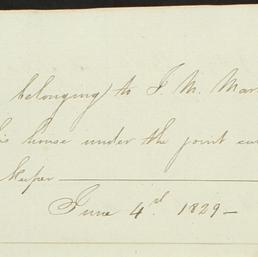 belonging to J. M. Mar
is house under the joint
keeper
June 4rd. 1829-